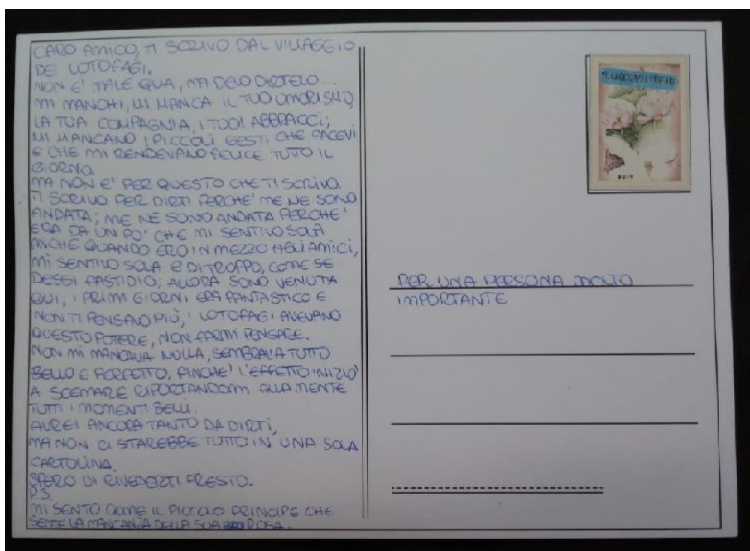 CARO AMICO, TI SCRIVO DAL VILLAGGIO
DEI LOTOFAGI.
NON E' MALE QUA, MA DEVO DIRTELO...
MI MANCHI, MI MANCA IL TUO UMORISMO,
LA TUA COMPAGNIA, I TUOI ABBRACCI;
MI MANCANO I PICCOLI GESTI CHE FACEVI
E CHE MI RENDEVANO FELICE TUTTO IL
GIORNO.
MA NON E' PER QUESTO CHE TI SCRIVO.
TI SCRIVO PER DIRTI PERCHE' ME NE SONO
ANDATA; ME NE SONO ANDATA PERCHE'
ERA DA UN PO' CHE MI SENTIVO SOLA
ANCHE QUANDO ERO IN MEZZO AGLI AMICI,
MI SENTIVO SOLA E DI TROPPO, COME SE
DESSI FASTIDIO; ALLORA SONO VENUTA
QUI, I PRIMI GIORNI ERA FANTASTICO E
NON TI PENSAVO PIÙ, I LOTOFAGI AVEVANO
QUESTO POTERE, NON FARMI PENSARE.
NON MI MANCAVA NULLA, SEMBRAVA TUTTO
BELLO E PERFETTO, FINCHE' L'EFFETTO INIZIO'
A SCEMARE RIPORTANDOMI ALLA MENTE
TUTTI I MOMENTI BELLI.
AVREI ANCORA TANTO DA DIRTI,
MA NON CI STAREBBE TUTTO IN UNA SOLA
CARTOLINA.
SPERO DI RIVEDERTI PRESTO.
P.S.
MI SENTO COME IL PICCOLO PRINCIPE CHE
SENTE LA MANCANZA DELLA SUA ROSA.
PER UNA PERSONA MOLTO
IMPORTANTE